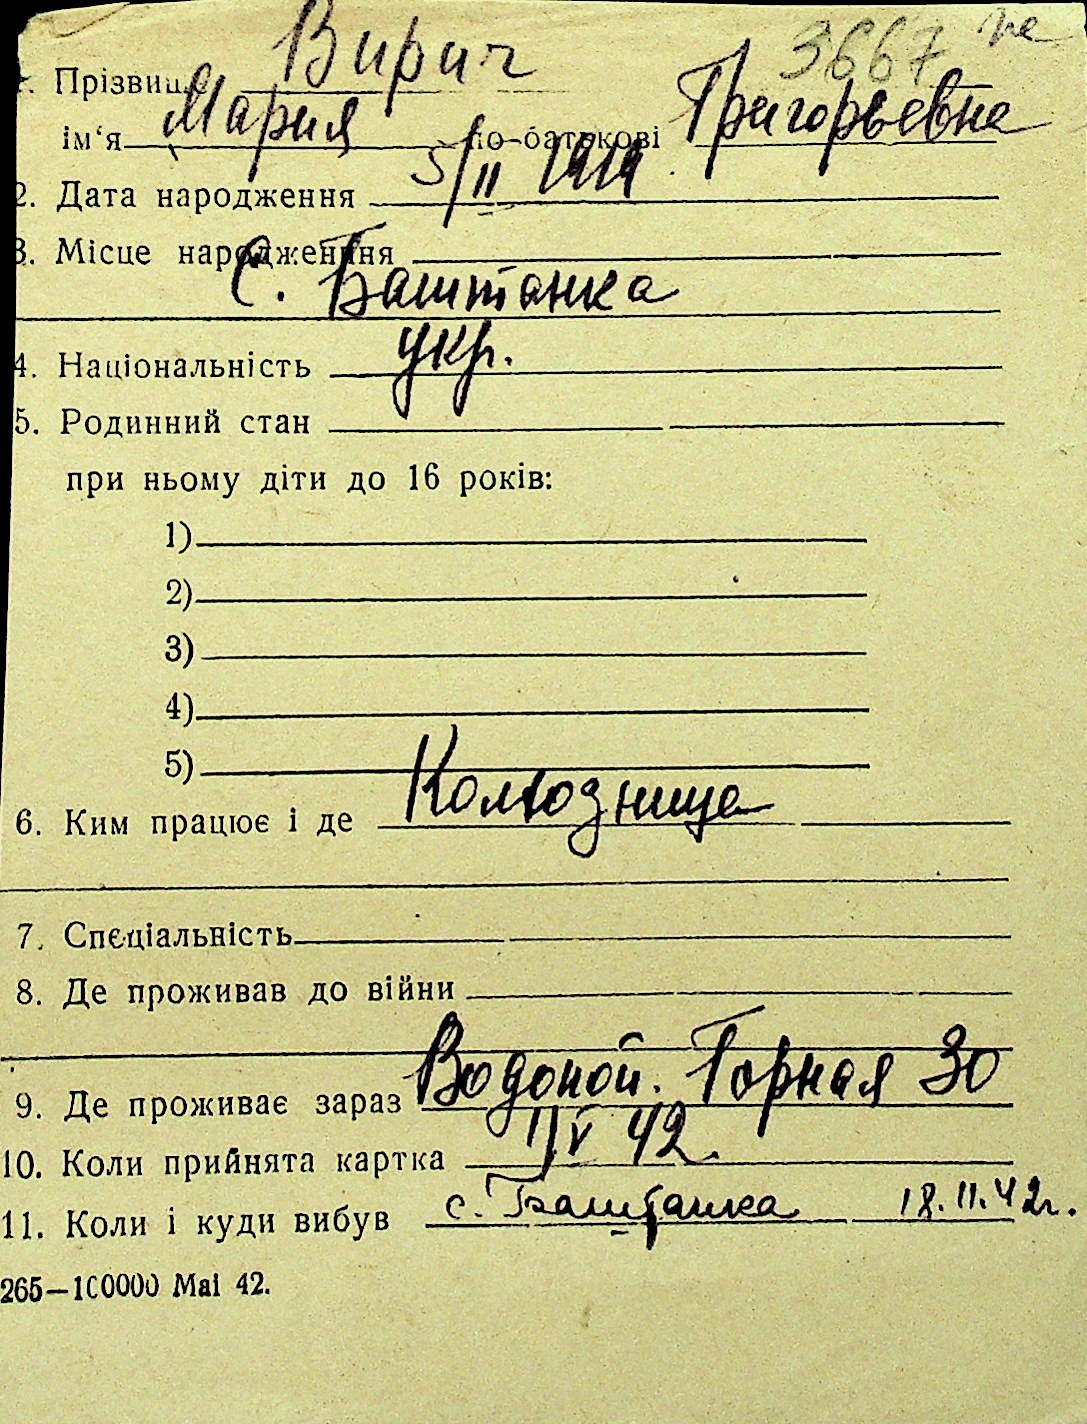 3667
Вирич
1. Прізвище
ім'я Мария по-батькові Григорьевна
2. Дата народження 5/II 1919
3. Місце народження
с. Баштанка
4. Національність укр.
5. Родинний стан
при ньому діти до 16 років:
1)
2)
3)
4)
5)
6. Ким працює і де Колхозница
7. Спеціальність
8. Де проживав до війни
9. Де проживає зараз Водопой. Горная 30
10. Коли прийнята картка 1/V 42
11. Коли і куди вибув с. Баштанка 18.11.42г.
265—100000 Mai 42.